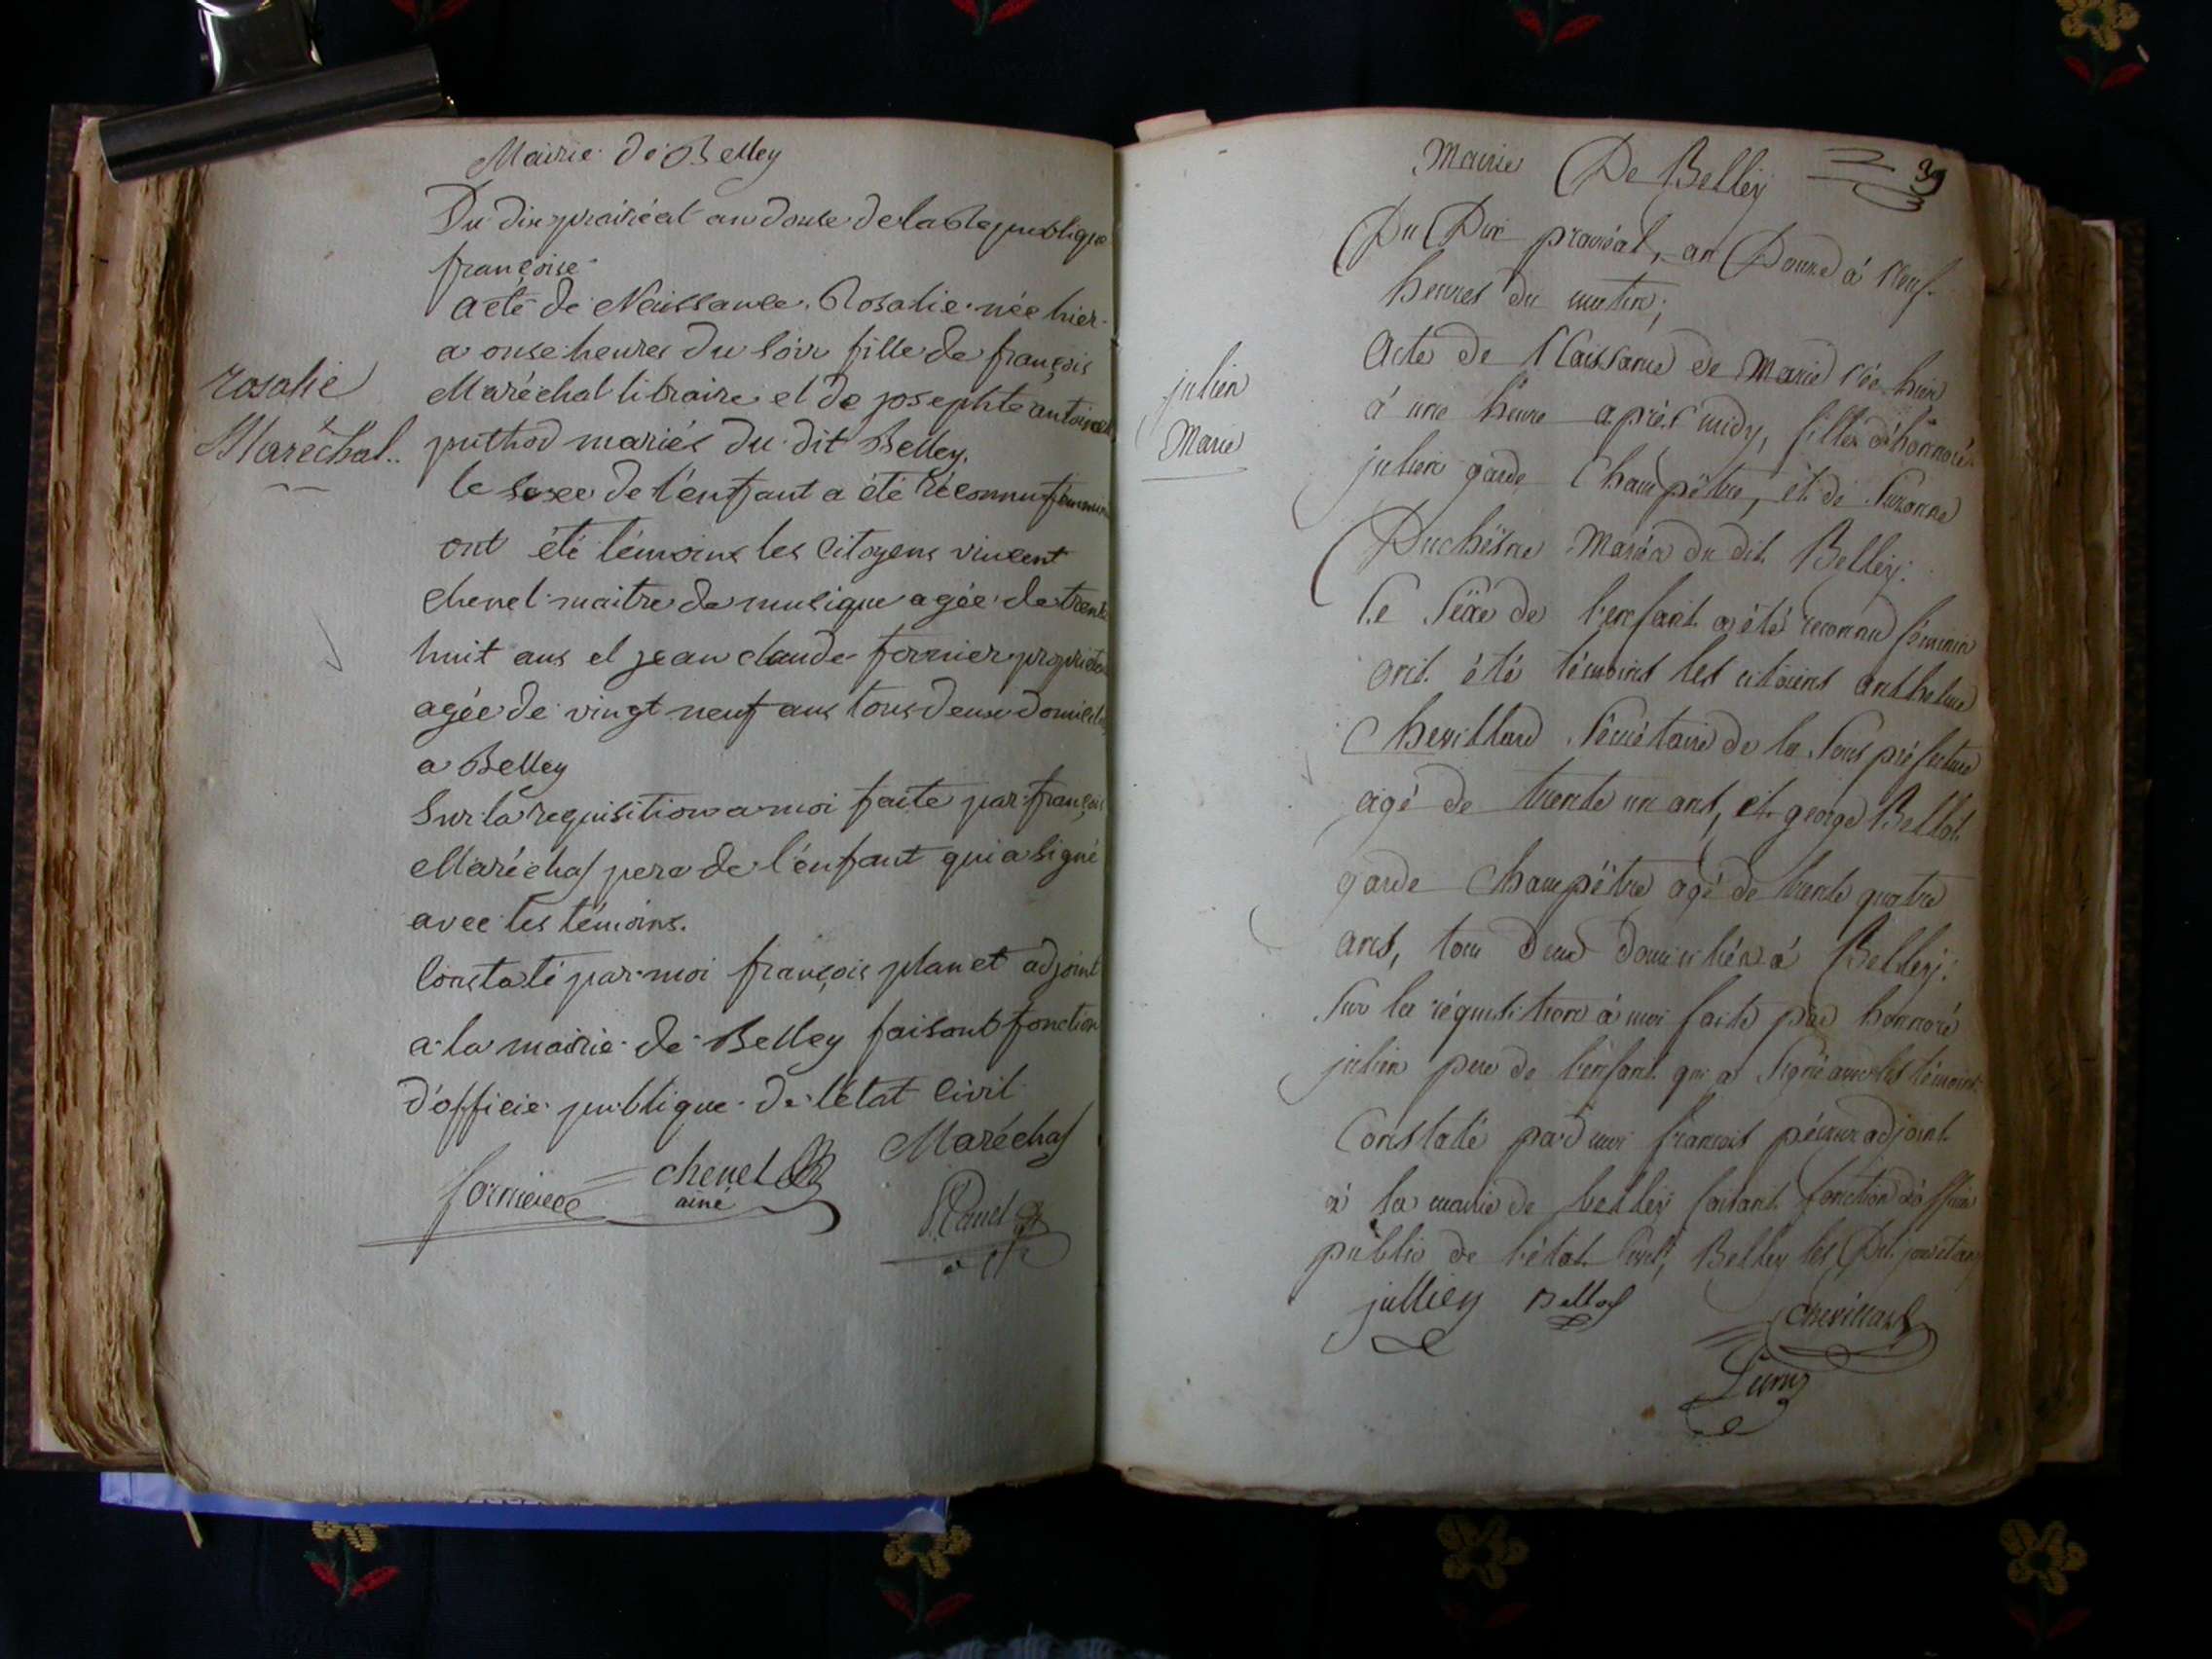 Mairie de Belley
Du dix prairéal an douse de la Republique
françoise
acte de Naissance. Rosalie née hier
a onse heures du soir fille de françois
Maréchal libraire et de josephte antoinette
puthod mariés du dit Belley.
rosalie
Maréchal..
le sexe de l'enfant a été réconnu féminin
ont été témoins les Citoyens vincent
chenel maitre de musique agée de trente
huit ans et jean claude fornier propriétaire
agée de vingt neuf ans tous deux domicilés
a Belley
Sur la requisition a moi faite par françois
Maréchal pere de l'énfant qui a signé
avec les témoins.
Constaté par moi françois planet adjoint
a la mairie de Belley faisant fonction
d'officie publique de l'état Civil
Maréchal
fornier chenel
ainé
Planet
Mairie De Belley 39
Du Dix prairéal, an Douze à Neuf
heures du matin;
Acte de Naissance de Marie Née hier
à une heure après midy, fille d'honnoré
julien garde Champêtre, et de Suzanne
Duchêsne Mariés du dit Belley.
julien
Marie
Le Séxe de l'enfant a été reconnu féminin
ont été témoins les citoiens anthelme
Chevillard Sécrétaire de la Sous préfecture
agé de trente un ans, et george Bellot
garde Champêtre agé de trente quatre
ans, tous deux domiciliés à Belley.
Sur la réquisition à moi faite par honnoré
julien pere de l'enfant qui a Signé avec les témoins
Constaté par moi francois adjoint
à la mairie de belley faisant fonction d'officier
public de l'état Civil, Belley les Dit jour et an
jullien Bellot Chevillard